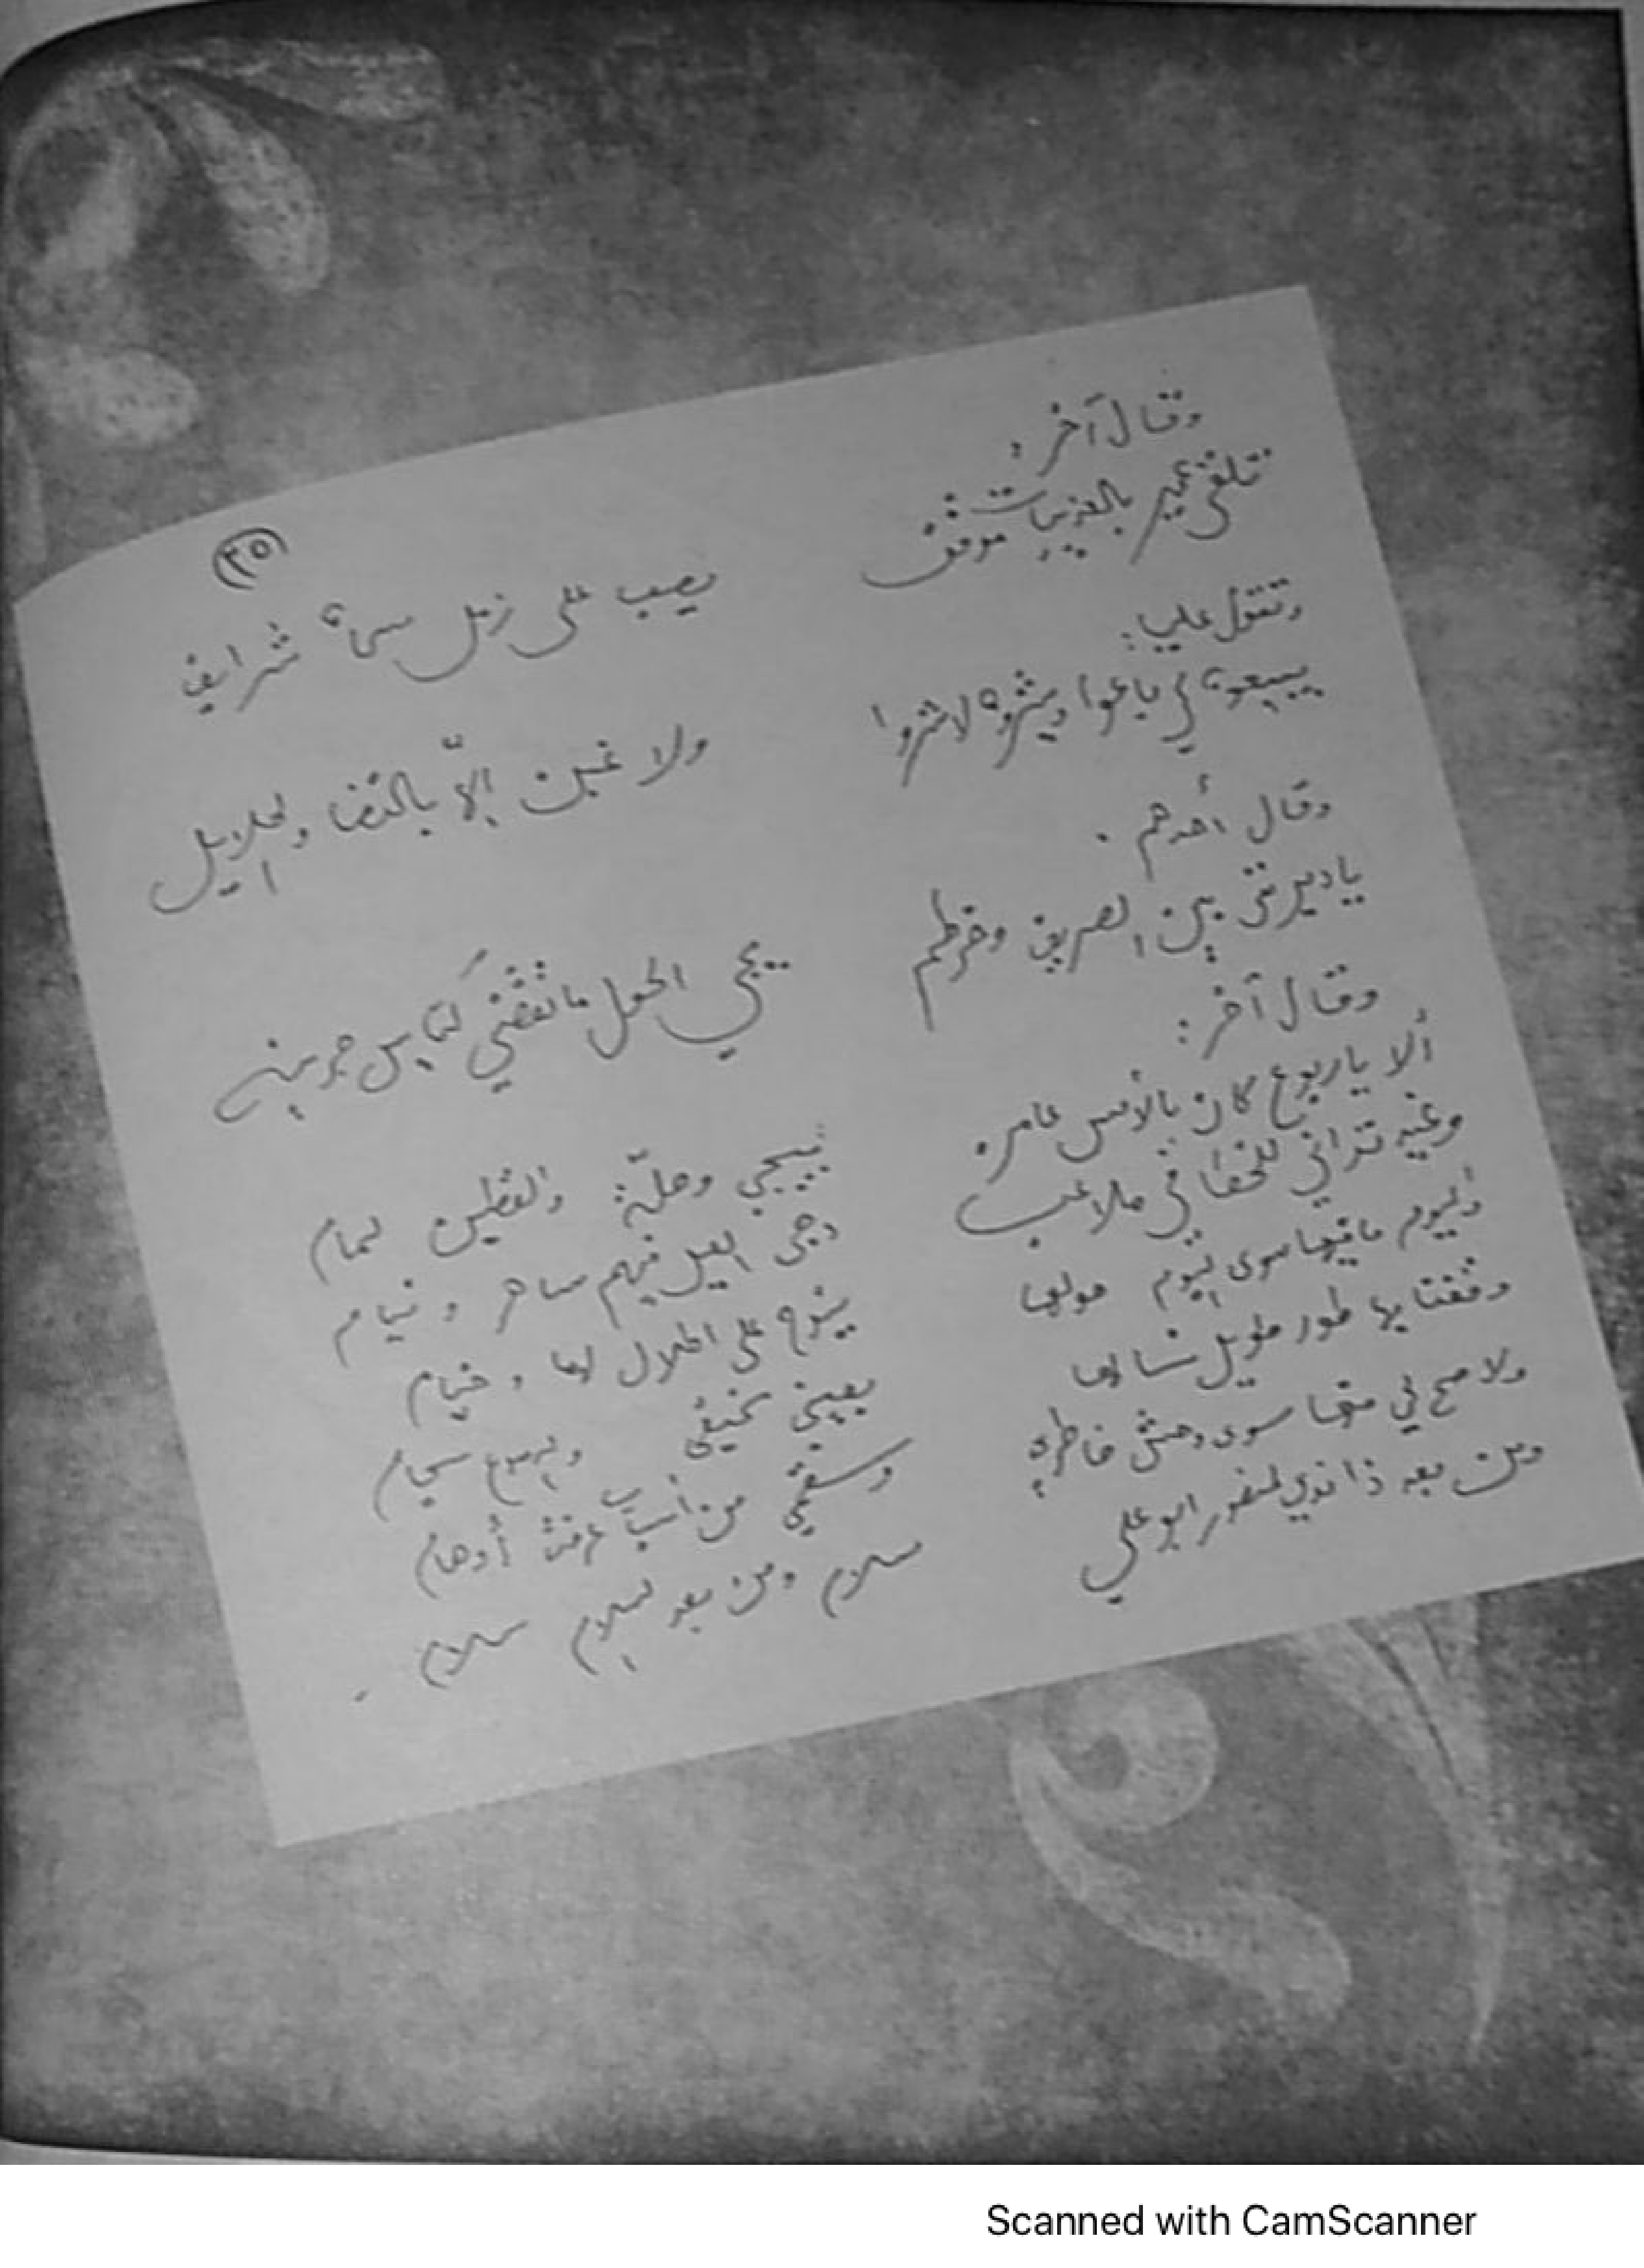 (٣٥)
وقال آخر:
تلقى عمير بالعذيبات موقف يصب على زمل سماه شرايف
وتقول عليا:
يبيعوه لي باعوا ويشروه لا شروا ولا غبن إلّا بالنضا والحلايل
وقال أحدهم.
يا ديرتي بين الصريف وخرطم يجي الحول ما نقضي كتايس جرينه
وقال آخر:
ألا يا ربوع كان بالأمس عامره بيجي وحلّه والقطين لمام
وغيد تراني للخطا في ملاعب دجى الليل فيهم ساهر ونيام
واليوم ما فيها سوى البوم حولها ينوح على اطلال لها وخيام
وقفنا بها طور طويل نسالها بعيني نحيفى والدموع سجام
ولا صح لي منها سوى دهش خاطري وسقمي من أسبّ عرفت أوهام
ومن بعد ذا ودي لمنصور ابو علي سلام ومن بعد السلام سلام
Scanned with CamScanner